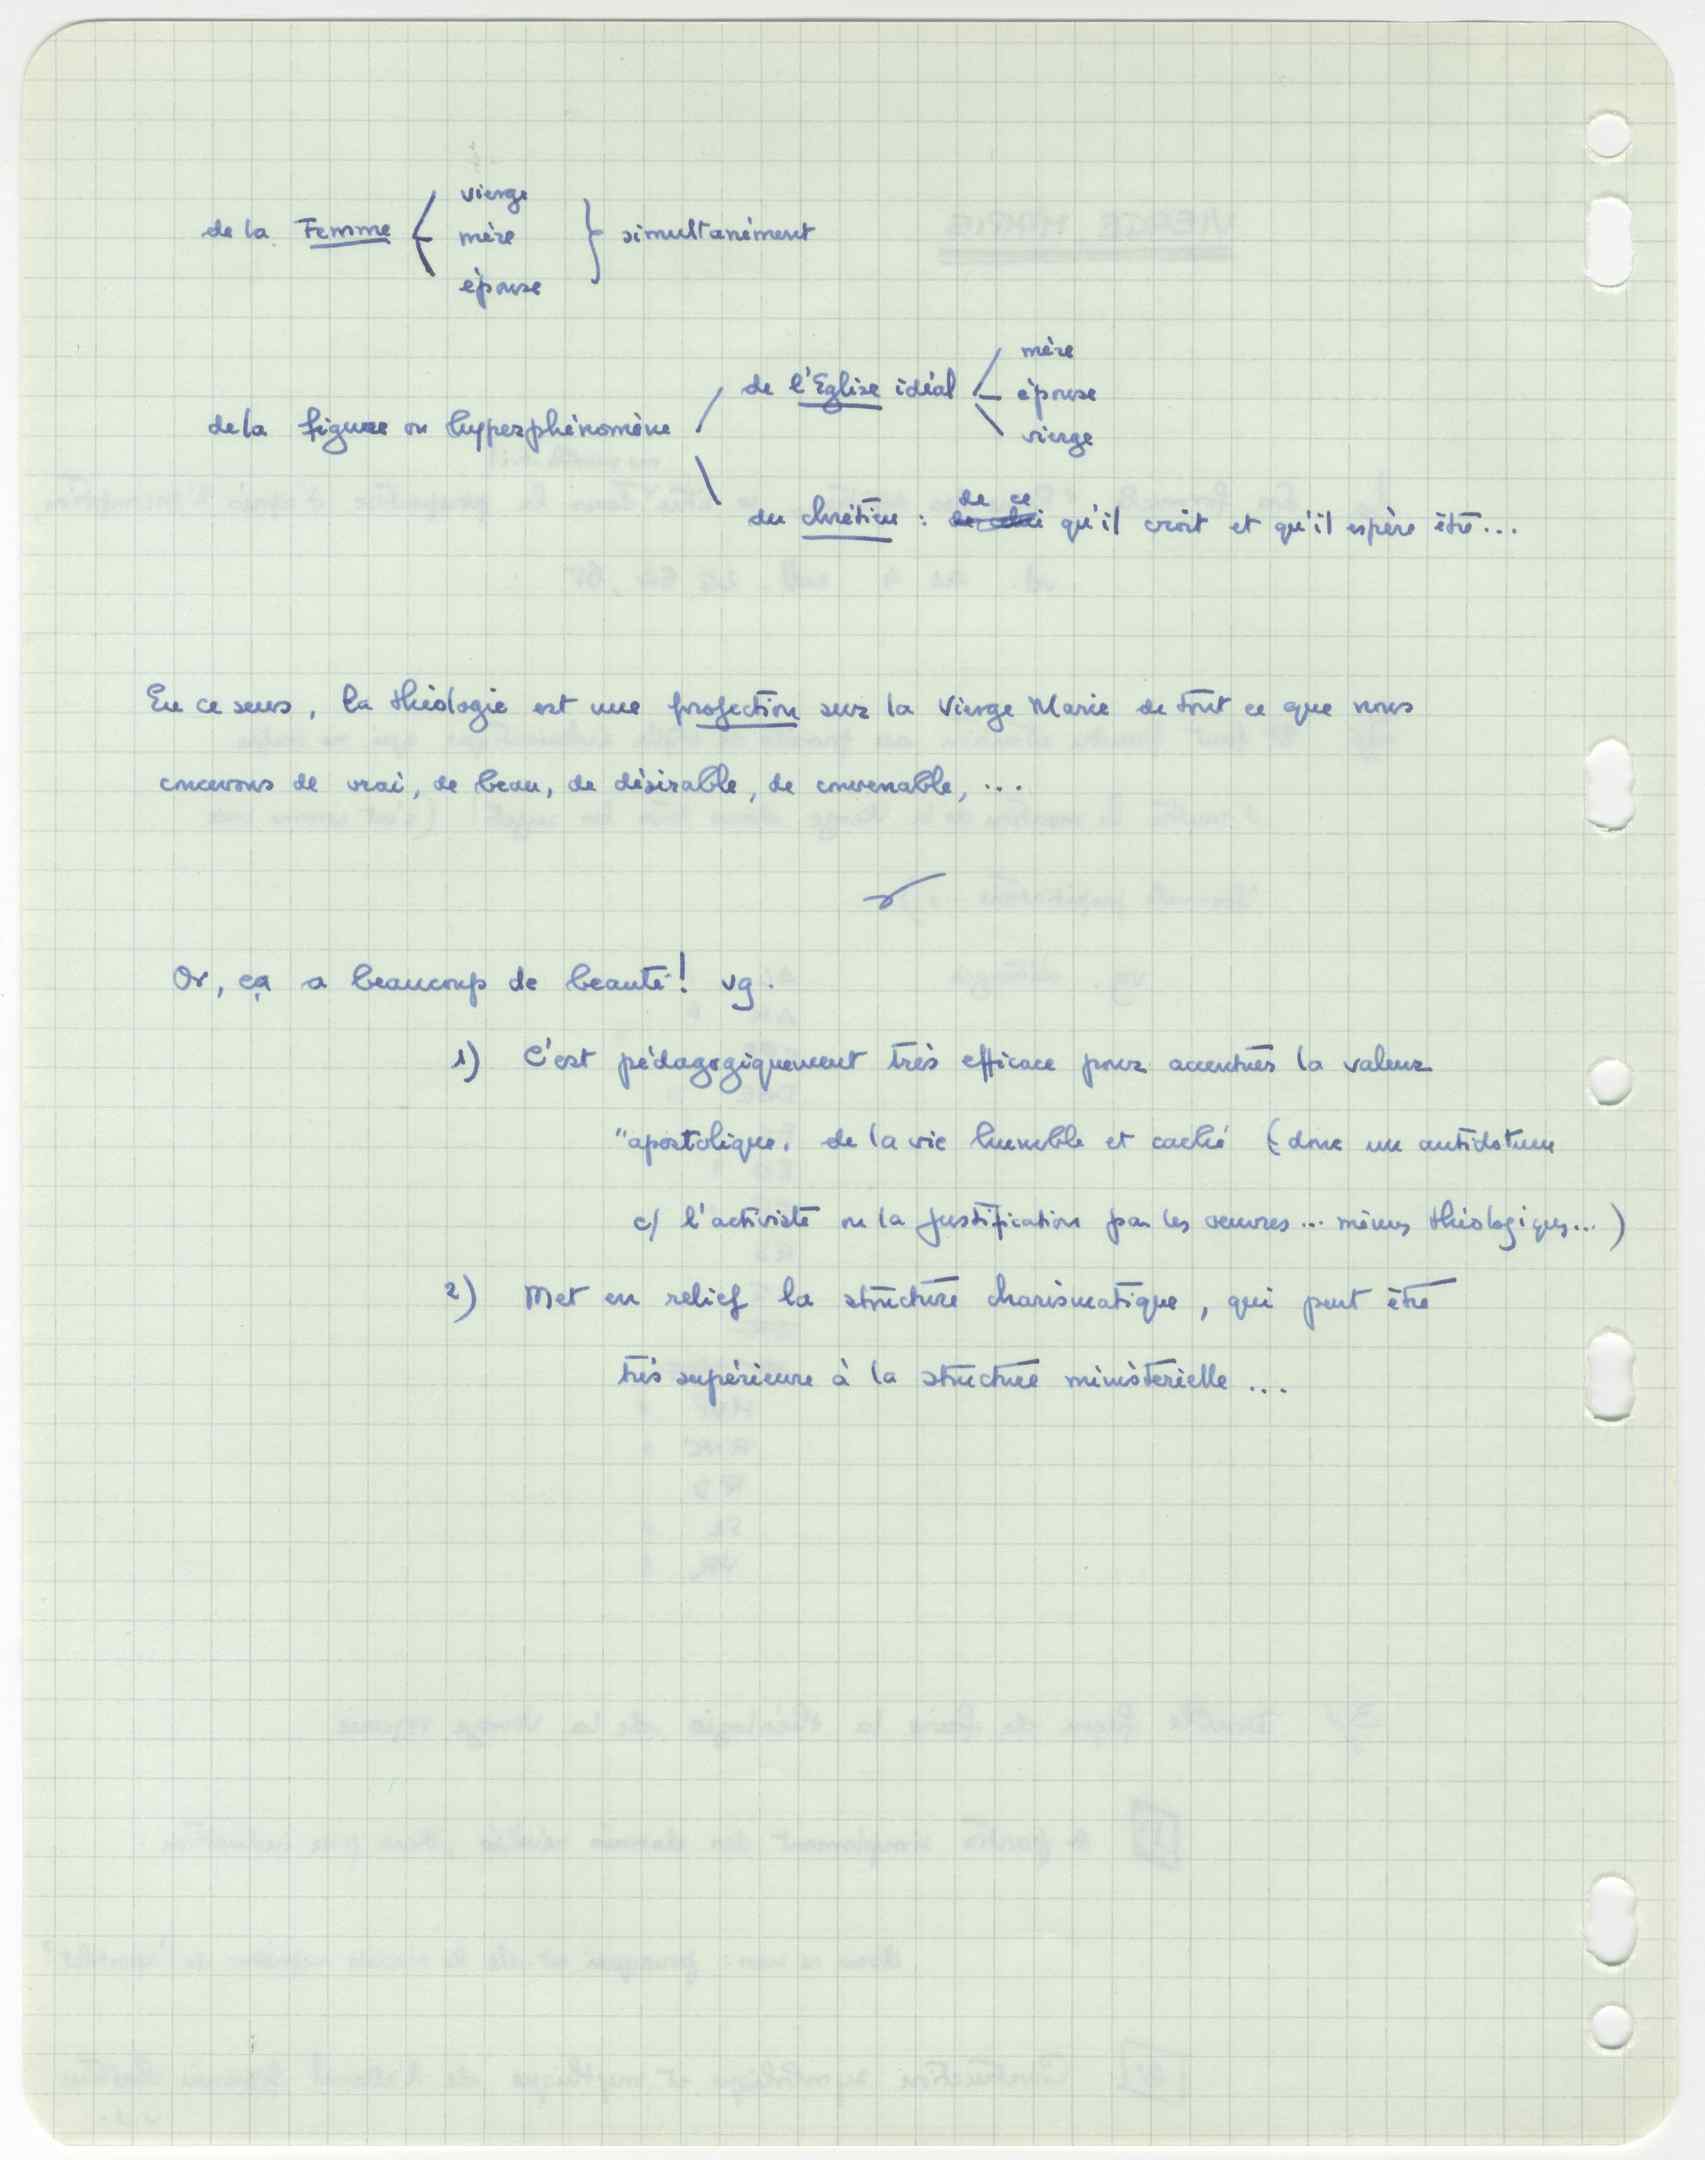 vierge
de la Femme mère simultanément
épouse
mère
de l'Eglise idéal épouse
de la figure ou hypperphénomène
vierge
de ce
du chrétien : de celui qu'il croit et qu'il espère être...
En ce sens, la théologie est une projection sur la Vierge Marie de tout ce que nous
concevons de vrai, de beau, de désirable, de convenable, ...
Or, ça a beaucoup de beauté! vg.
1) C'est pédagogiquement très efficace pour accentuer la valeur
"apostolique" de la vie humble et caché (donc un antidotum
c/ l'activisté ou la justification par les œuvres... mêmes théologiques...)
2) Met en relief la structure charismatique, qui peut être
très supérieure à la structure ministérielle ...